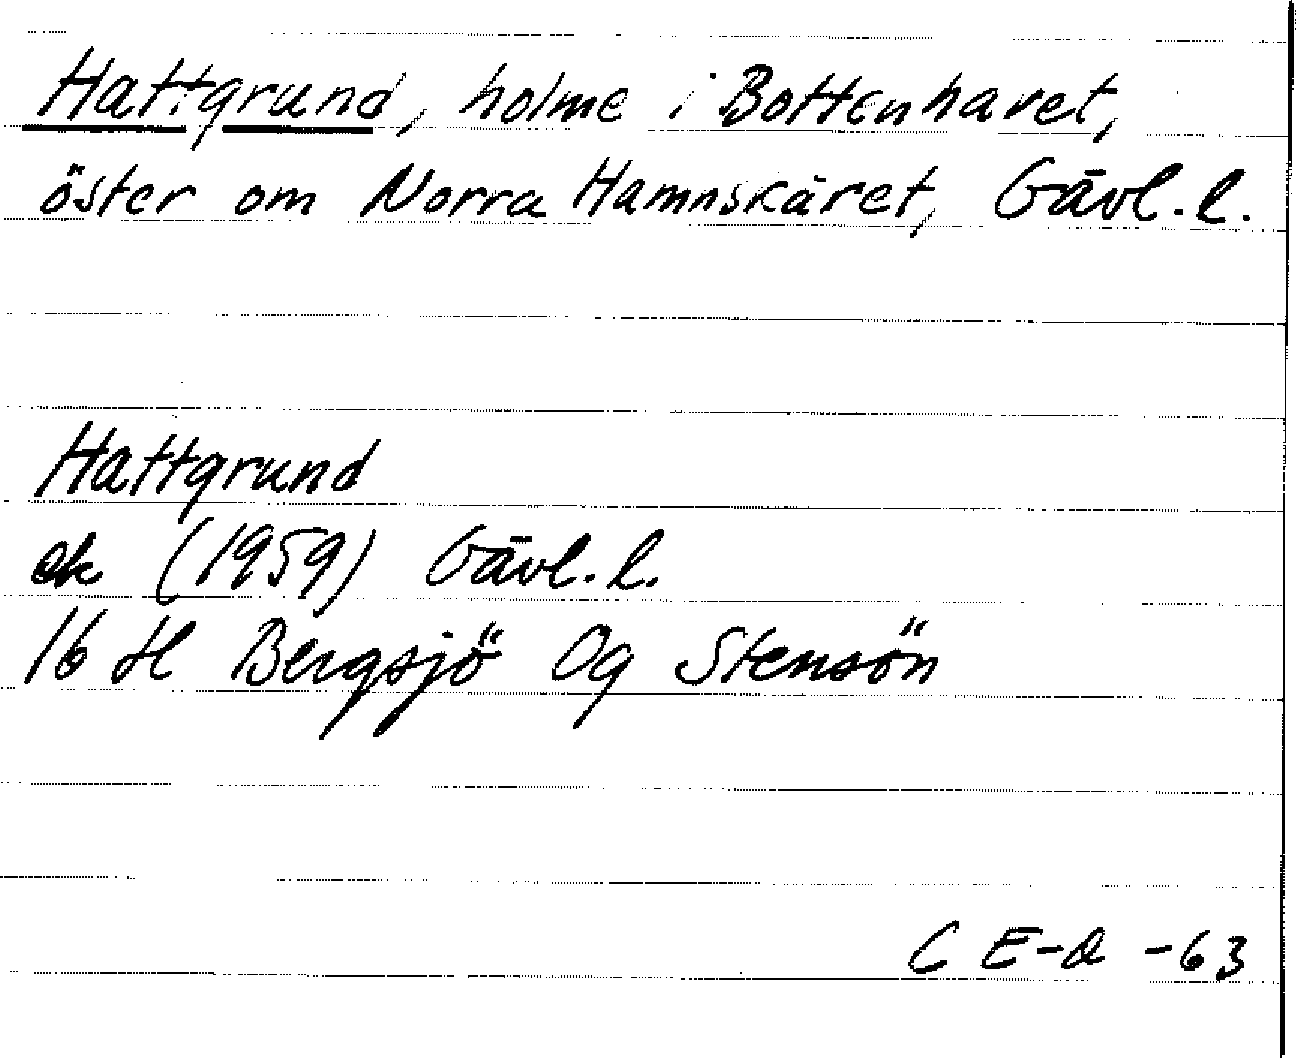 Hattgrund, holme i Bottenhavet,
öster om Norra Hamnskäret, Gävl. l.
Hattgrund
ek (1959) Gävl. l.
16 H Bergsjö Og Stensön
C E-d -63